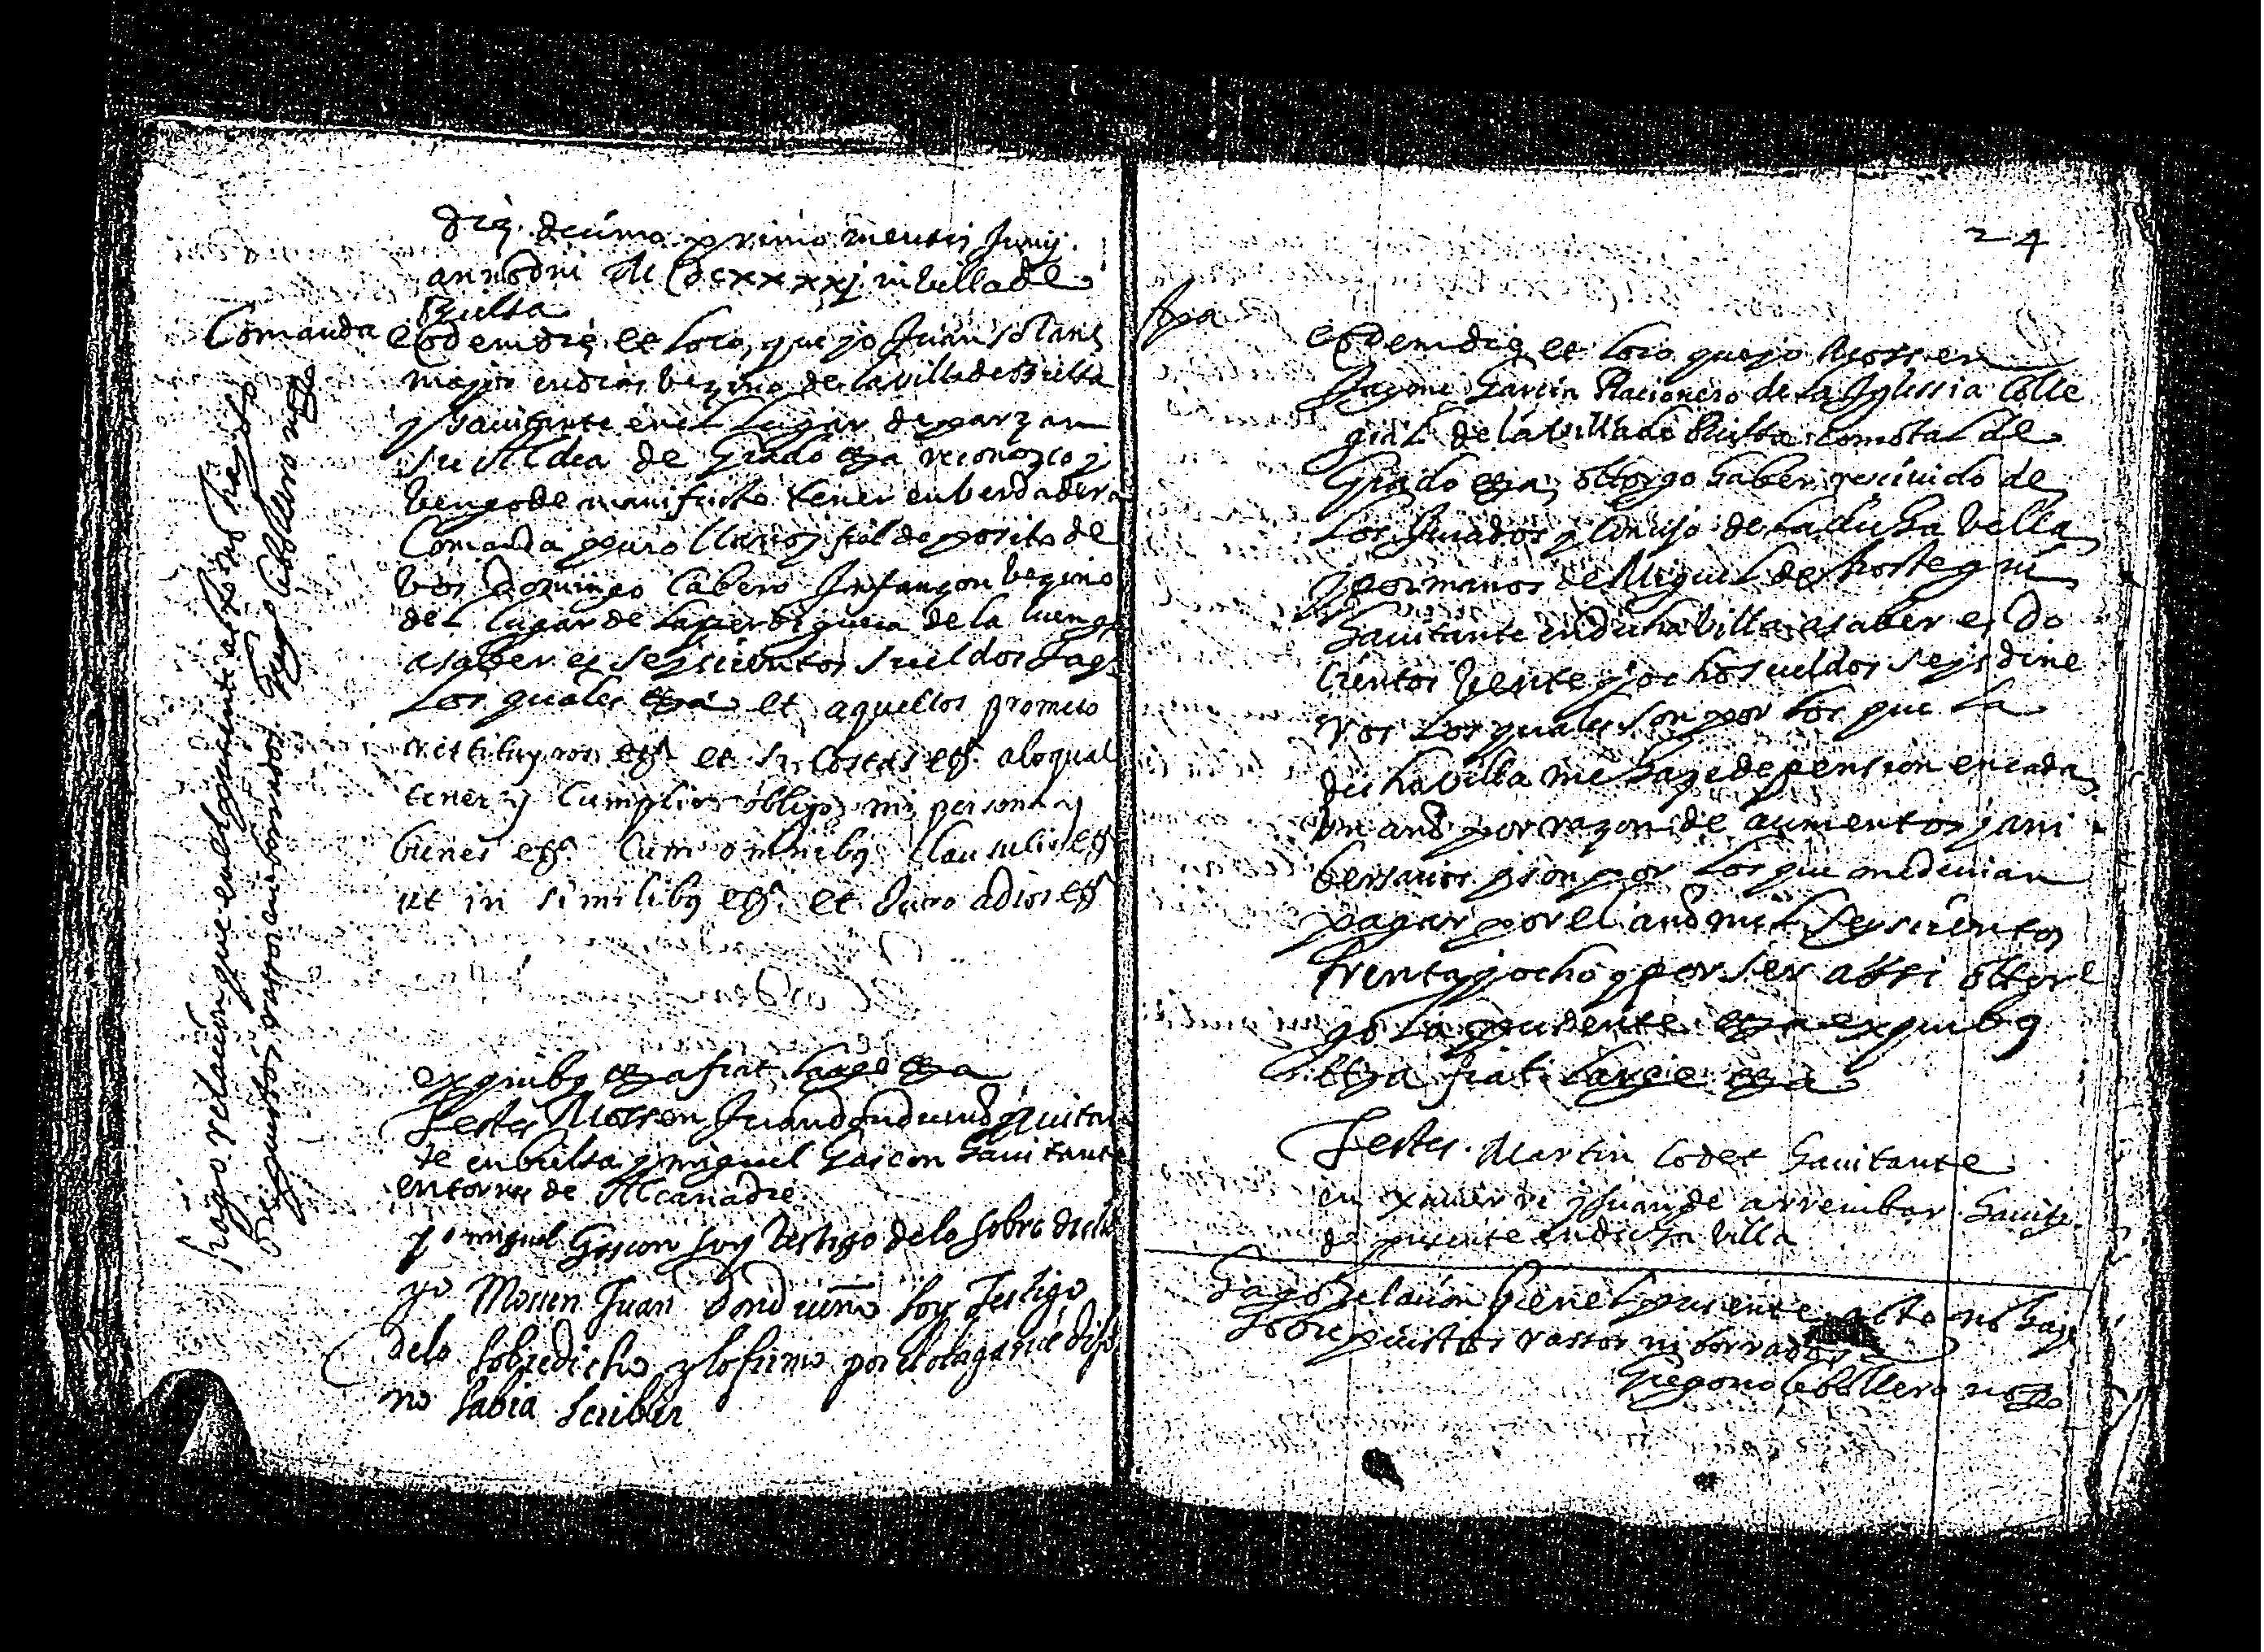 die decimo primo mensis Junij
anno dni M DCxxxxj in villa de
Bielsa
Comanda
eodem die et loco, que yo Juan solans
mayor en dias vezino de la villa de Bielsa
y hauitante en el lugar de parzan
su Aldea de Grado etza reconozco y
vengo de manifiesto tener en verdadera
Comanda puro llano y fiel deposito de
vos domingo Cabero Infançon vezino
del lugar de laperdiguera de la
asaber es seyscientos sueldos Jaqs
Los quales etza et aquellos prometo
restituyros etc et si costas etc a lo qual
tener y Cumplir obligo mi persona y
bienes etc Cum omnibus Clausulis etc
ut in similibus etc et Juro a dios etc
ex quibus etza fiat large etza
Testes Mossen Juan hauitan
te en bielsa y miguel Gascon hauitante
en torre de Alcanadre
yo miguel Gascon soy testigo delo sobre dicho
yo Mossen Juan soy Testigo
delo sobredicho y lo firmo por el otorgante que dijo
no sabia scribir
hago relacion que en el presente acto no hay
sobrepuestos rassos ni borrados
24
Apa
eodem die et loco que yo Mossen
Jayme Garcia Racionero de la Iglessia Colle
gial de la villa de Bielsa como tal de
Grado etza otorgo haber resciuido de
Los Jurados y Concejo de la dicha villa
y por manos de Miguel de
hauitante en dicha villa asaber es Do
cientos veynte y ocho sueldos seys dine
ros Los quales son por los que la
dicha villa me haze de pension en cada
un año por razon de aumentos y ani
bersarios y son por los que me deuian
pagar por el año mil seyscientos
trenta y ocho y por ser assi ottor
go La presente etza ex quibus
etza fiat large etza
Testes Martin Codet hauitante
en xauierre y Juan de arrembar hauite
de presente en dicha villa
hago relacion que en el presente acto no hay
sobrepuestos rassos ni borrados
Gregorio Caballero noto